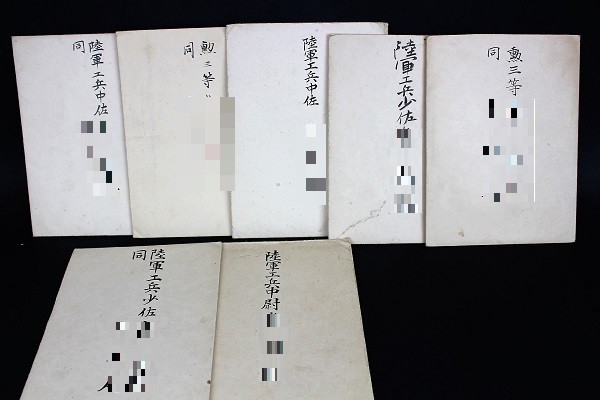 陸軍工兵中佐
同
勲三等
同
陸軍工兵中佐
陸軍工兵少佐
勲三等
同
陸軍工兵少佐
同
陸軍工兵中尉